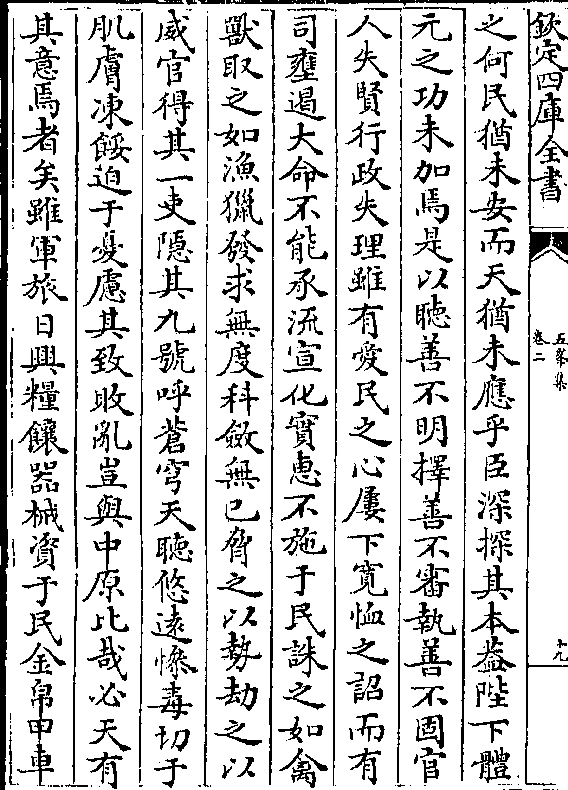 欽定四庫全書
五峯集
卷二
十九
之何民猶未安而天猶未應乎臣深探其本葢陛下體
元之功未加焉是以聽善不明擇善不審執善不固官
人失賢行政失理雖有愛民之心屢下寛恤之詔而有
司壅遏大命不能承流宣化實惠不施于民誅之如禽
獸取之如漁獵發求無度科斂無已脅之以勢劫之以
威官得其一吏隠其九號呼蒼穹天聽悠逺慘毒切于
肌膚凍餒迫于憂慮其致敗亂豈與中原比哉必天有
其意焉者矣雖軍旅日興糧饟器械資于民金帛甲車